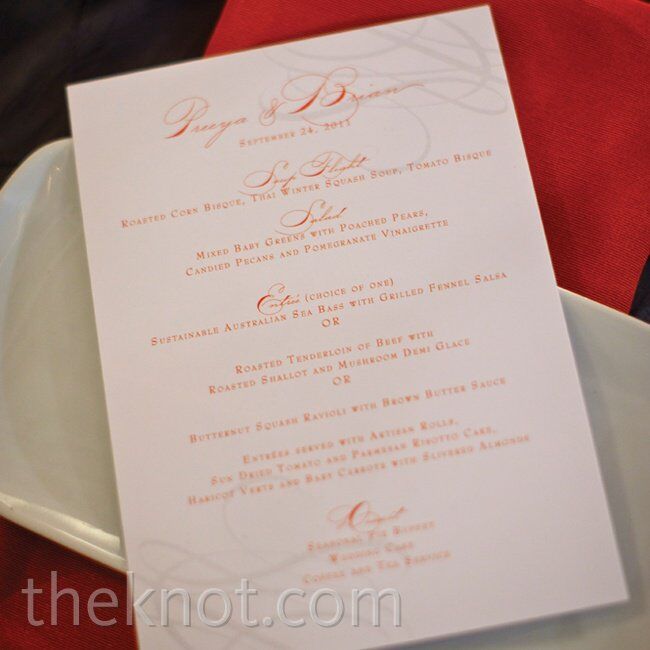 Preeya & Brian
September 24, 2011
Soup Flight
Roasted Corn Bisque, Thai Winter Squash Soup, Tomato Bisque
Salad
Mixed Baby Greens with Poached Pears,
Candied Pecans and Pomegranate Vinaigrette
Entrée (choice of one)
Sustainable Australian Sea Bass with Grilled Fennel Salsa
OR
Roasted Tenderloin of Beef with
Roasted Shallot and Mushroom Demi Glace
OR
Butternut Squash Ravioli with Brown Butter Sauce
Entrées served with Artisan Rolls,
Sun Dried Tomato and Parmesan Risotto Cake,
Haricot Verts and Baby Carrots with Slivered Almonds
Dessert
Seasonal Pie Buffet
Wedding Cake
Coffee and Tea Service
theknot.com